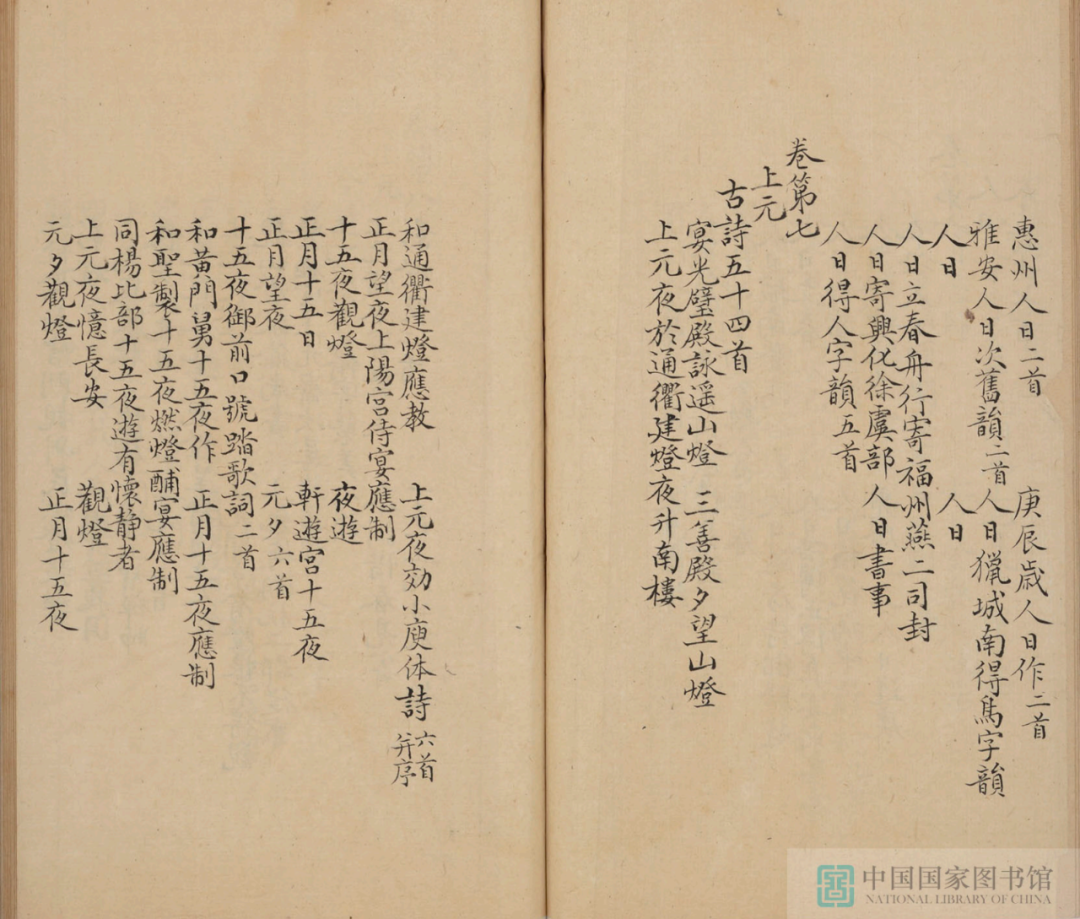 惠州人日二首　庚辰歲人日作二首
雅安人日次舊韻二首　人日獵城南得鳥字韻
人日　人日
人日立春舟行寄福州燕二司封
人日寄興化徐虞部　人日書事
人日得人字韻五首
卷第七
上元
古詩五十四首
宴光璧殿詠遥山燈　三善殿夕望山燈
上元夜於通衢建燈夜升南樓
和通衢建燈應教　上元夜効小庾体詩六首并序
正月望夜上陽宫侍宴應制
十五夜觀燈　夜遊
正月十五日　軒遊宫十五夜
正月望夜　元夕六首
十五夜御前口號踏歌詞二首
和黄門舅十五夜作　正月十五夜應制
和聖製十五夜燃燈酺宴應制
同楊比部十五夜遊有懷静者
上元夜憶長安　觀燈
元夕觀燈　正月十五夜
中国国家图书馆
NATIONAL LIBRARY OF CHINA